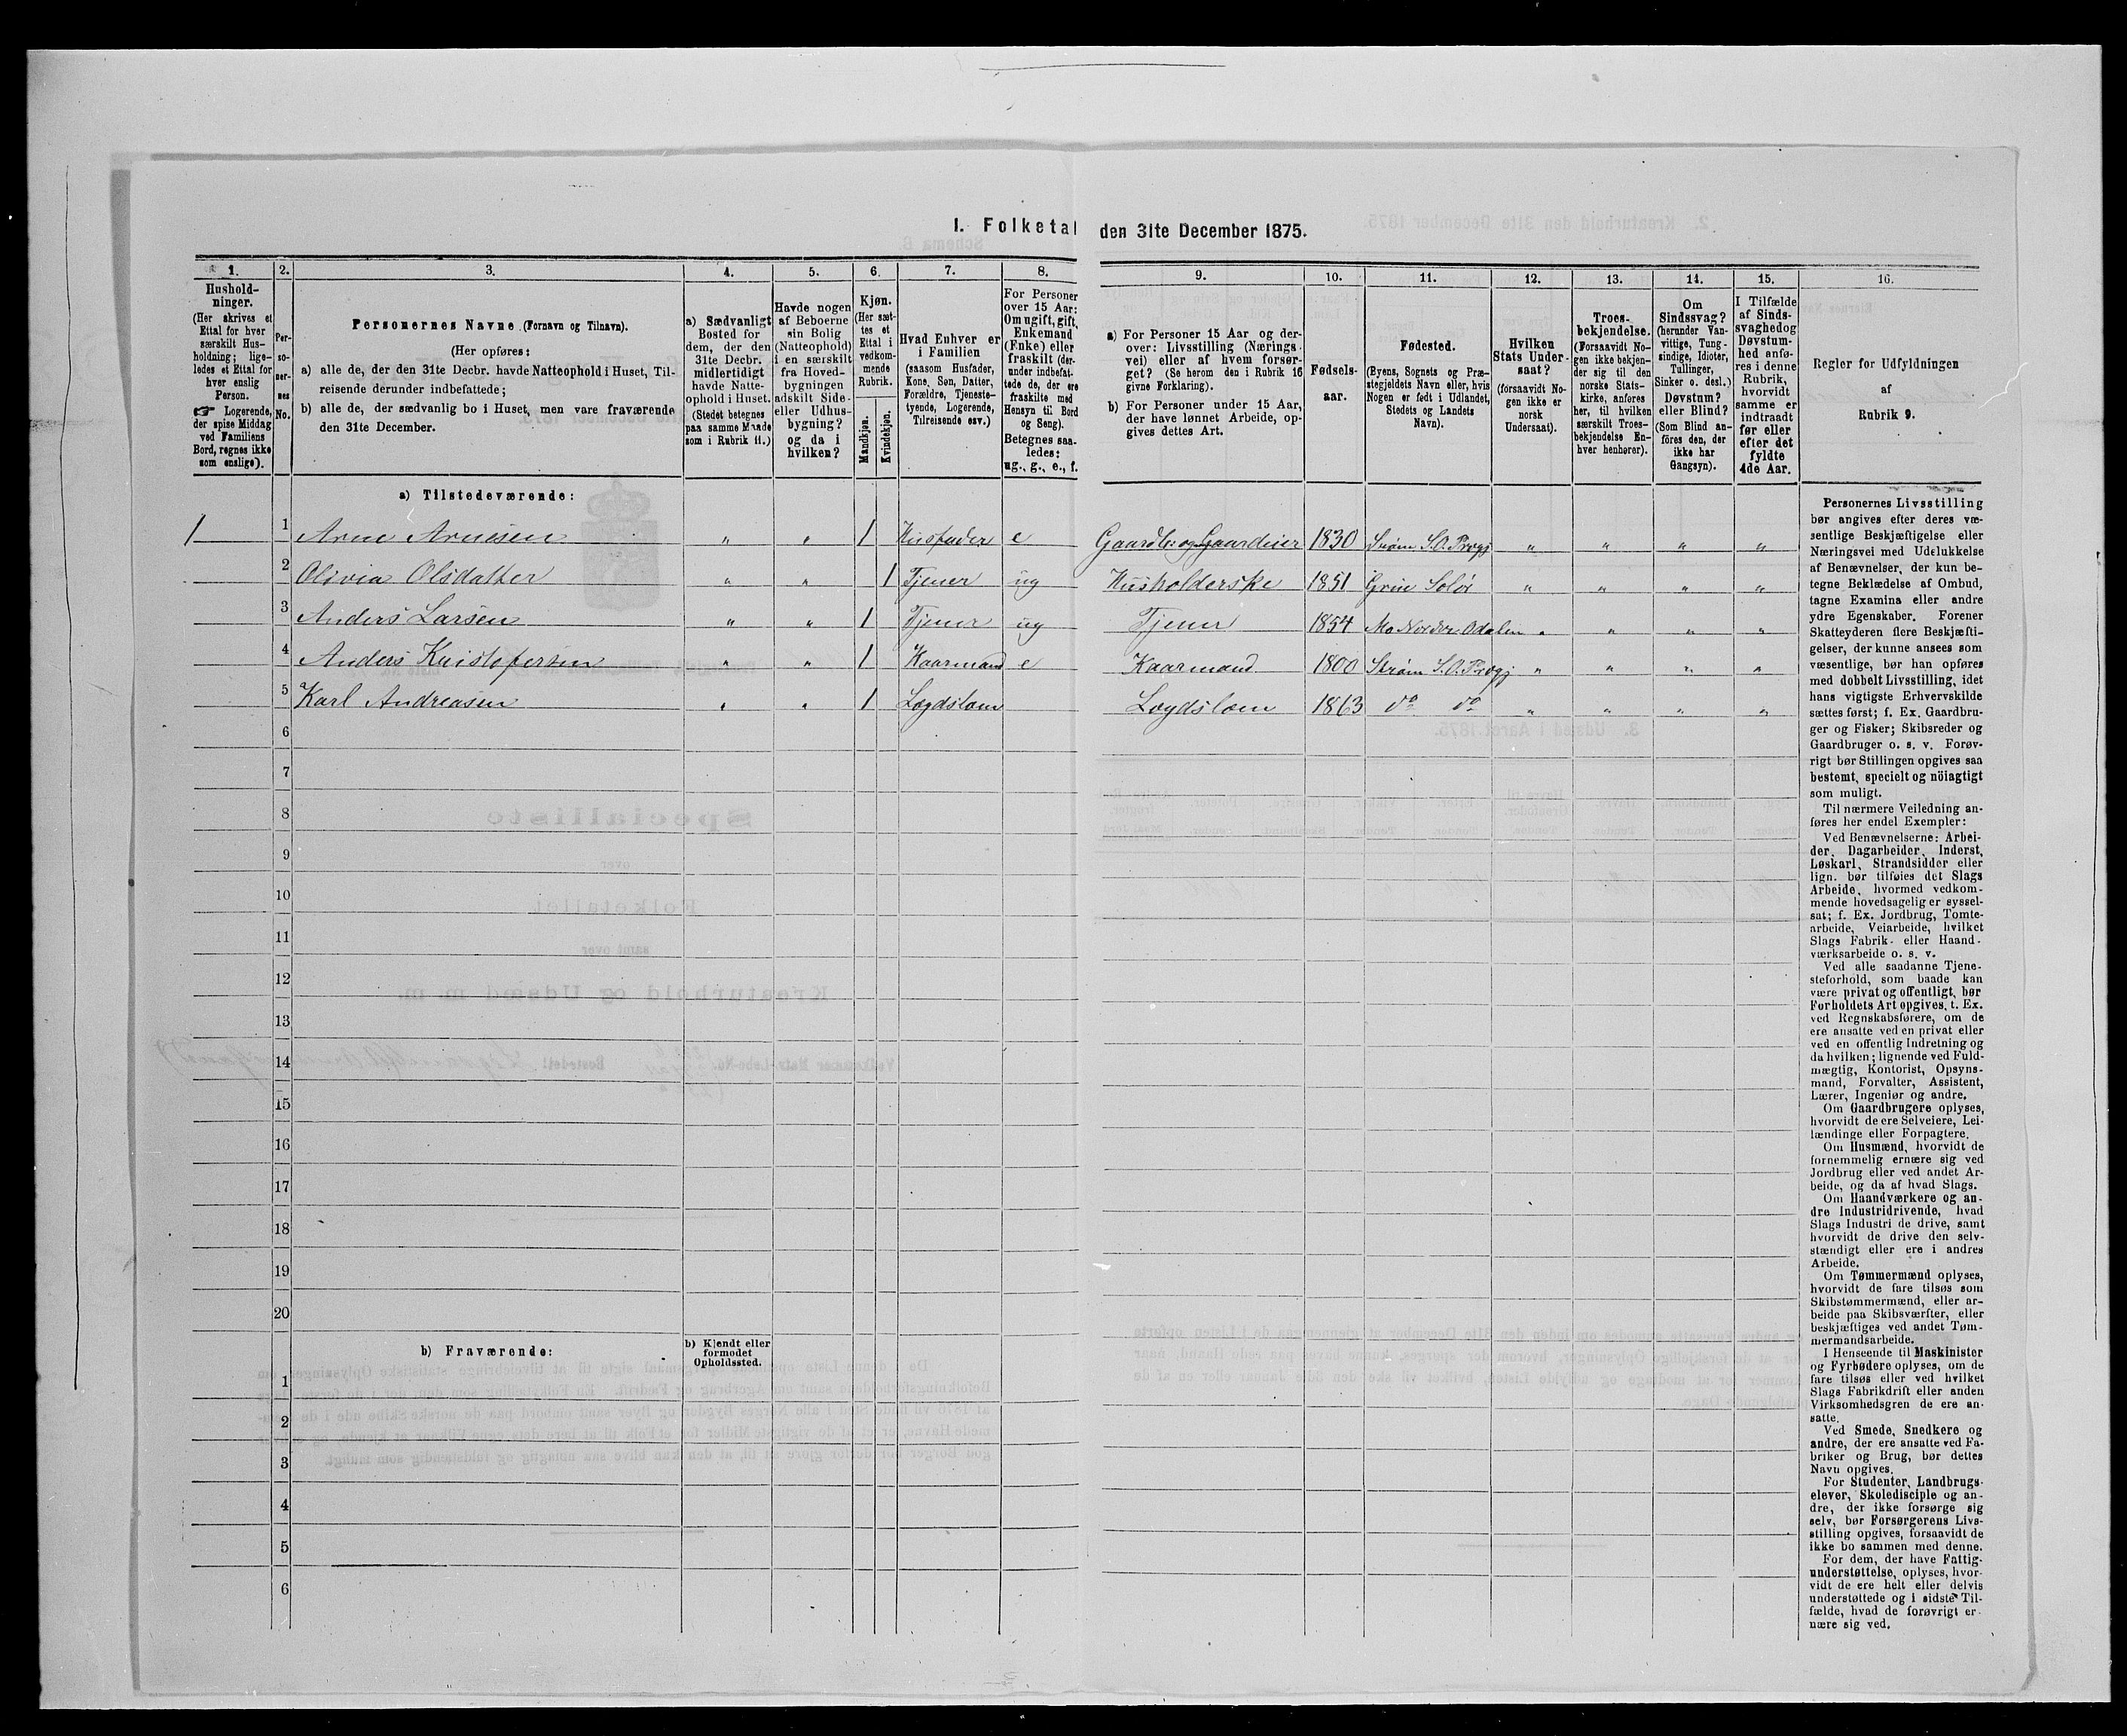 I. Folketal den 31te December 1875.
1. 2. 3. 4. 5. 6. 7. 8. 9. 10. 11. 12. 13. 14. 15. 16.
Hushold-
ninger.
(Her skrives et
Ettal for hver
særskilt Hus-
holdning; lige-
ledes et Ettal for
hver enslig
Person.
☞ Logerende,
der spise Middag
ved Familiens
Bord, regnes ikke
som enslige).
Per-
so-
ner-
nes
No.
Personernes Navne (Fornavn og Tilnavn).
(Her opføres:
a) alle de, der den 31te Decbr. havde Natteophold i Huset, Til-
reisende derunder indbefattede;
b) alle de, der sædvanlig bo i Huset, men vare fraværende
den 31te December.
a) Sædvanligt
Bosted for
dem, der den
31te Decbr.
midlertidigt
havde Natte-
ophold i Huset.
(Stedet betegnes
paa samme Maade
som i Rubrik 11.)
Havde nogen
af Beboerne
sin Bolig
(Natteophold)
i en særskilt
fra Hoved-
bygningen
adskilt Side-
eller Udhus-
bygning?
og da i
hvilken?
Kjøn.
(Her sæt-
tes et
Ettal i
vedkom-
mende
Rubrik.
Mandkjøn.
Kvindekjøn.
Hvad Enhver er
i Familien
(saasom Husfader,
Kone, Søn, Datter,
Forældre, Tjeneste-
tyende, Logerende,
Tilreisende osv.)
For Personer
over 15 Aar:
Om ugift, gift,
Enkemand
(Enke) eller
fraskilt (der-
under indbefat-
tede de, der ere
fraskilte med
Hensyn til Bord
og Seng).
Betegnes saa-
ledes:
ug., g., e., f.
a) For Personer 15 Aar og der-
over: Livsstilling (Nærings-
vei) eller af hvem forsør-
get? (Se herom den i Rubrik 16
givne Forklaring).
b) For Personer under 15 Aar,
der have lønnet Arbeide, op-
gives dettes Art.
Fødsels-
aar.
Fødested.
(Byens, Sognets og Præ-
stegjeldets Navn eller, hvis
Nogen er født i Udlandet,
Stedets og Landets
Navn).
Hvilken
Stats Under-
saat?
(forsaavidt No-
gen ikke er
norsk
Undersaat).
Troes-
bekjendelse.
(Forsaavidt No-
gen ikke bekjen-
der sig til den
norske Stats-
kirke, anføres
her, til hvilken
særskilt Troes-
bekjendelse En-
hver henhører).
Om
Sindssvag?
(herunder Van-
vittige, Tung-
sindige, Idioter,
Tullinger,
Sinker o. desl.)
Døvstum?
eller Blind?
(Som Blind an-
føres den, der
ikke har
Gangsyn).
I Tilfælde
af Sinds-
svaghed og
Døvstum-
hed anfø-
res i denne
Rubrik,
hvorvidt
samme er
indtraadt
før eller
efter det
fyldte
4de Aar.
Regler for Udfyldningen
af
Rubrik 9.
a) Tilstedeværende:
1 1 Arne Arnesen " " 1 Husfader e Gaardbr. og Gaardeier 1830 Strøm S. O. Prægj " " " "
2 Olivia Olsdatter " " 1 Tjener ug Husholderske 1851 Grue Solør " " " "
3 Anders Larsen " " 1 Tjener ug Tjener 1854 Mo Nordre Odalen " " " "
4 Anders Kristofersen " " 1 Kaarmand e Kaarmand 1800 Strøm S. O. Prægj " " " "
5 Karl Andreasen " " 1 Lægdslem Lægdslem 1863 do do " " " "
6
7
8
9
10
11
12
13
14
15
16
17
18
19
20
b) Fraværende:
b) Kjendt eller
formodet
Opholdssted.
1
2
3
4
5
6
Personernes Livsstilling
bør angives efter deres væ-
sentlige Beskjæftigelse eller
Næringsvei med Udelukkelse
af Benævnelser, der kun be-
tegne Beklædelse af Ombud,
tagne Examina eller andre
ydre Egenskaber. Forener
Skatteyderen flere Beskjæfti-
gelser, der kunne ansees som
væsentlige, bør han opføres
med dobbelt Livsstilling, idet
hans vigtigste Erhvervskilde
sættes først; f. Ex. Gaardbru-
ger og Fisker; Skibsreder og
Gaardbruger o. s. v. Forøv-
rigt bør Stillingen opgives saa
bestemt, specielt og nöiagtigt
som muligt.
Til nærmere Veiledning an-
føres her endel Exempler:
Ved Benævnelserne: Arbei-
der, Dagarbeider, Inderst,
Løskarl, Strandsidder eller
lign. bør tilføies det Slags
Arbeide, hvormed vedkom-
mende hovedsagelig er syssel-
sat; f. Ex. Jordbrug, Tomte-
arbeide, Veiarbeide, hvilket
Slags Fabrik- eller Haand-
værksarbeide o. s. v.
Ved alle saadanne Tjene-
steforhold, som baade kan
være privat og offentligt, bør
Forholdets Art opgives, t. Ex.
ved Regnskabsførere, om de
ere ansatte ved en privat eller
ved en offentlig Indretning og
da hvilken; lignende ved Fuld-
mægtig, Kontorist, Opsyns-
mand, Forvalter, Assistent,
Lærer, Ingeniør og andre.
Om Gaardbrugere oplyses,
hvorvidt de ere Selveiere, Lei-
lændinge eller Forpagtere.
Om Husmænd, hvorvidt de
fornemmelig ernære sig ved
Jordbrug eller ved andet Ar-
beide, og da af hvad Slags.
Om Haandværkere og an-
dre Industridrivende, hvad
Slags Industri de drive, samt
hvorvidt de drive den selv-
stændigt eller ere i andres
Arbeide.
Om Tømmermænd oplyses,
hvorvidt de fare tilsøs som
Skibstømmermænd, eller ar-
beide paa Skibsværfter, eller
beskjæftiges ved andet Tøm-
mermandsarbeide.
I Henseende til Maskinister
og Fyrbødere oplyses, om de
fare tilsøs eller ved hvilket
Slags Fabrikdrift eller anden
Virksomhedsgren de ere an-
satte.
Ved Smede, Snedkere og
andre, der ere ansatte ved Fa-
briker og Brug, bør dettes
Navn opgives.
For Studenter, Landbrugs-
elever, Skoledisciple og an-
dre, der ikke forsørge sig
selv, bør Forsørgerens Livs-
stilling opgives, forsaavidt de
ikke bo sammen med denne.
For dem, der have Fattig-
understøttelse, oplyses, hvor-
vidt de ere helt eller delvis
understøttede og i sidste Til-
fælde, hvad de forøvrigt er-
nære sig ved.